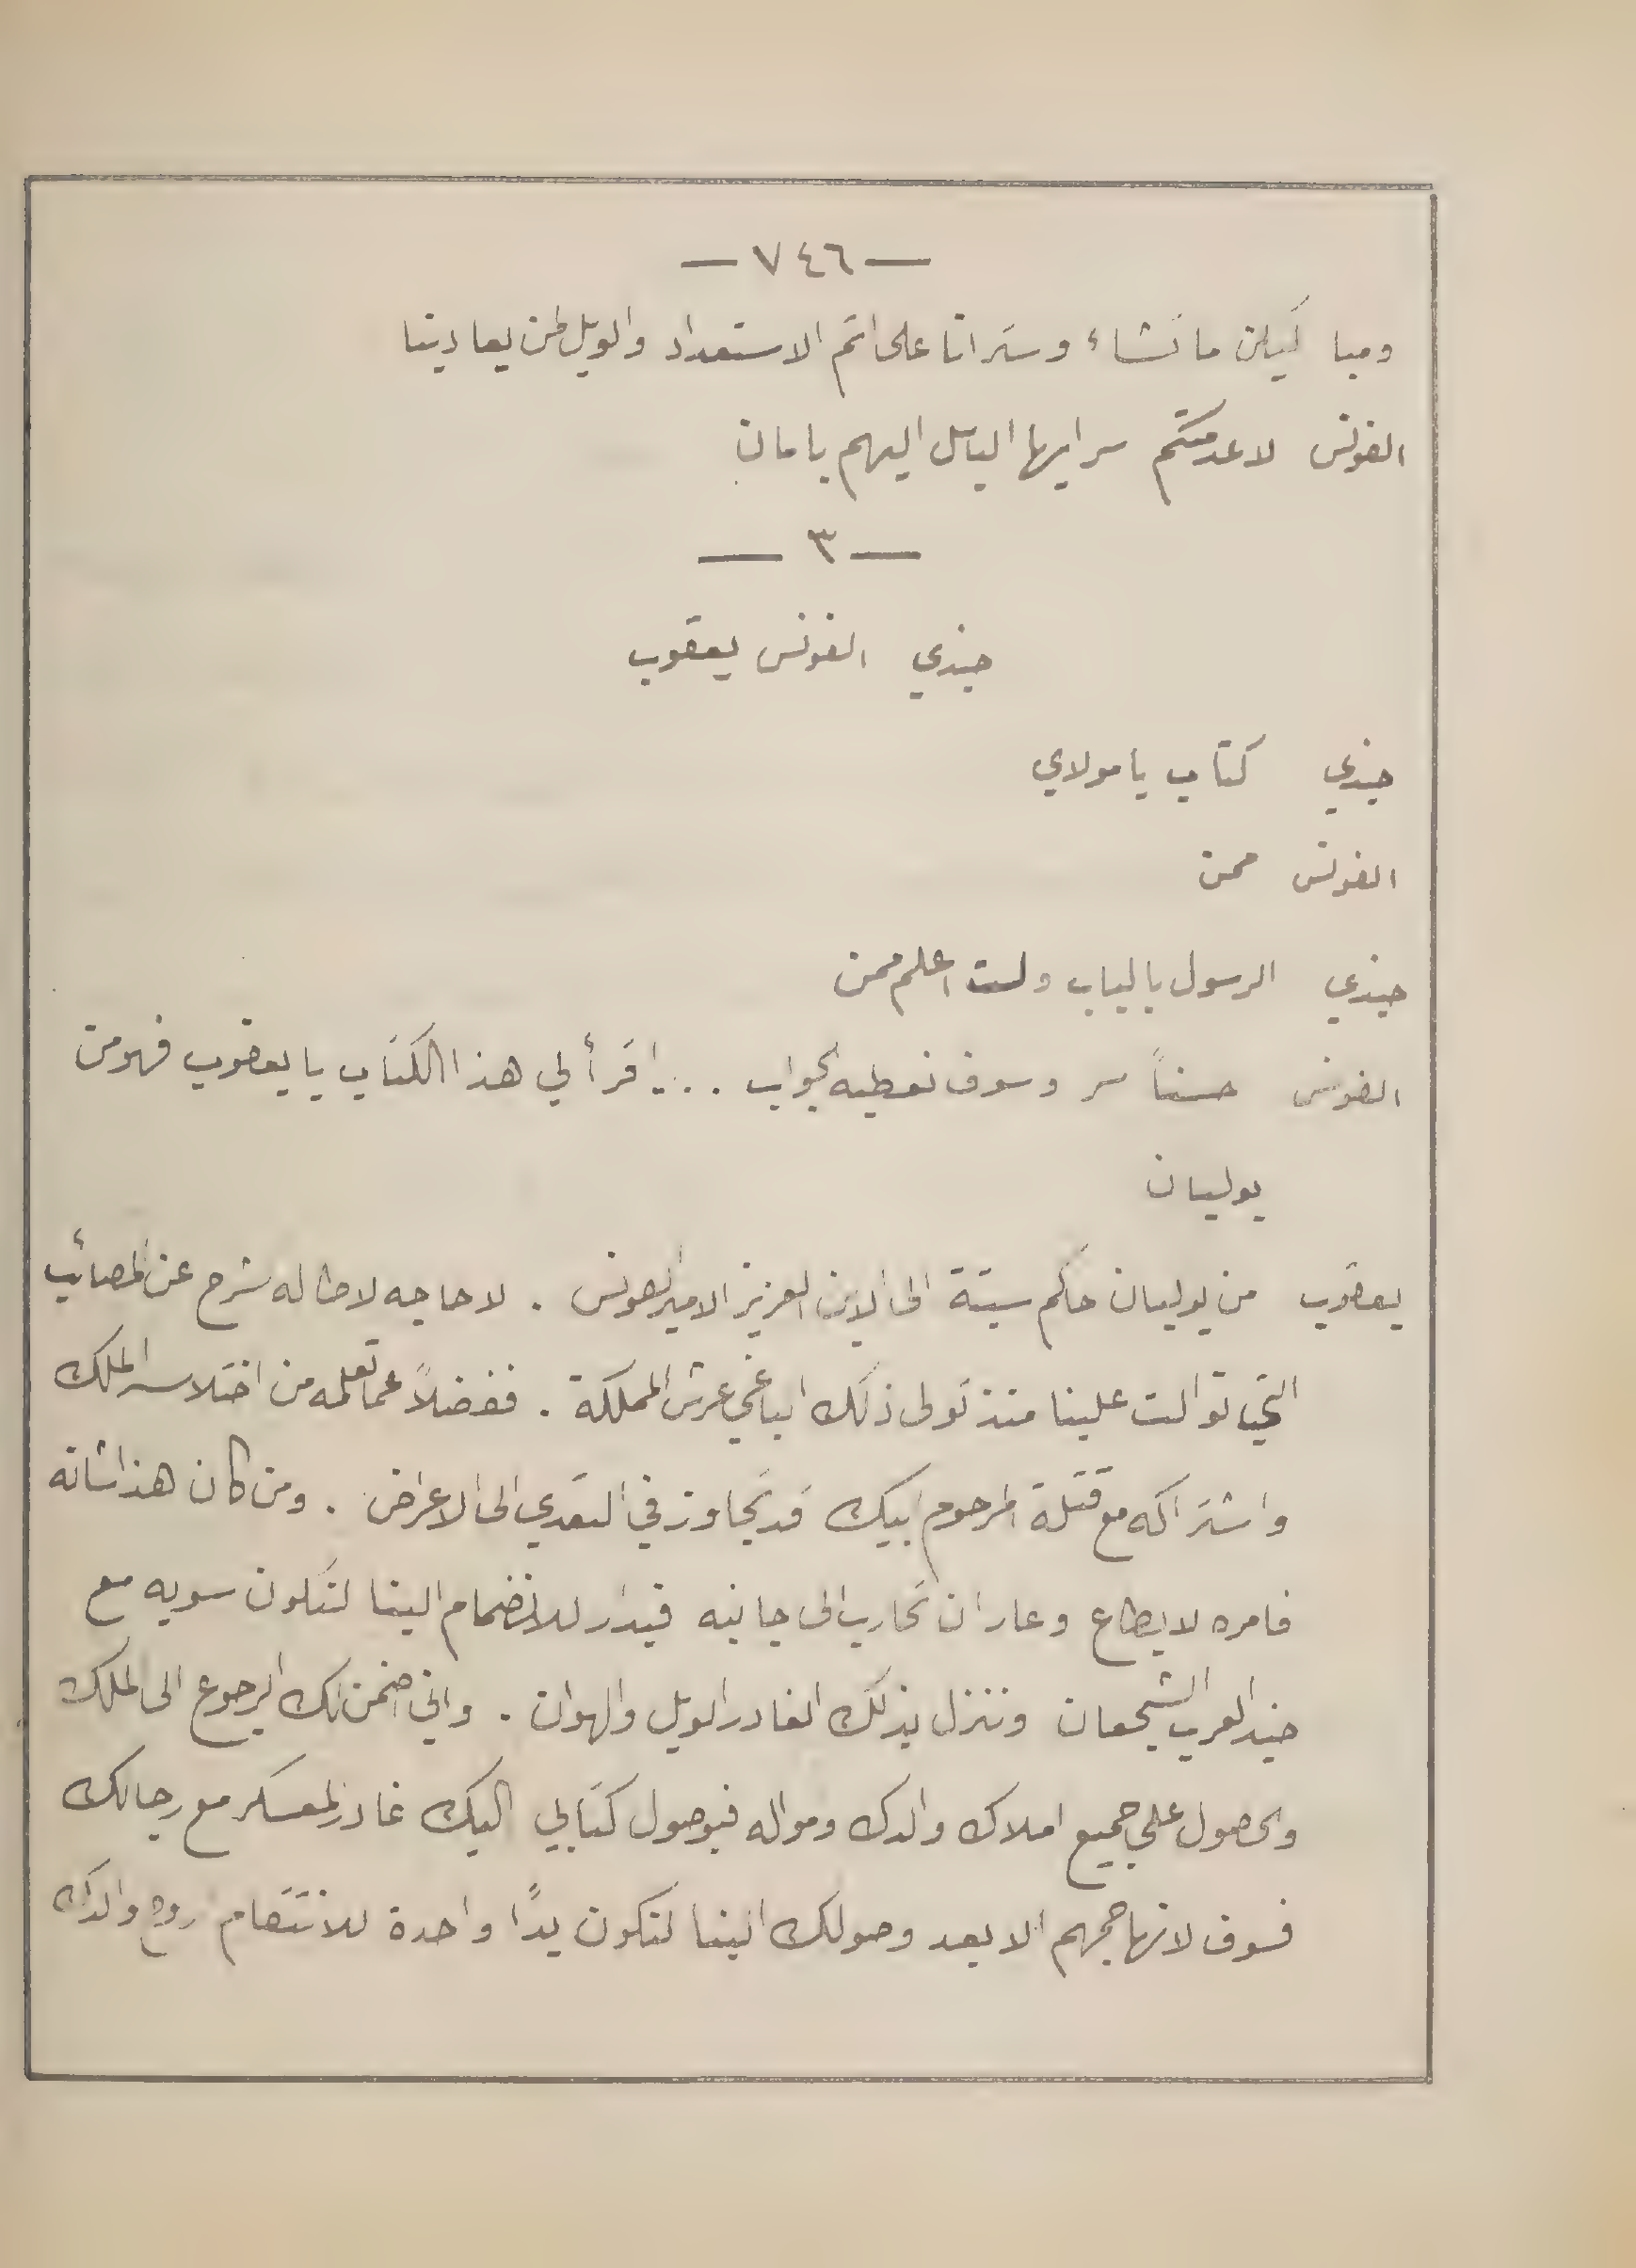 — ٧٤٦ —
ومبا ليكن ما تشاء وسترانا على اتم الاستعداد والويل لمن يعادينا
الفونس لاعدمتكم سر ايها الباسل اليهم بامان
— ٣ —
جندي الفونس يعقوب
جندي كتاب يا مولاي
الفونس ممن
جندي الرسول بالباب ولست اعلم ممن
الفونس حسناً سر وسوف نعطيه الجواب .... اقرأ لي هذا الكتاب يا يعقوب فهو من
يوليان
يعقوب من يوليان حاكم سبتة الى الابن العزيز الامير الفونس . لا حاجه لاطاله شرح عن المصائب
التي توالت علينا منذ تولى ذلك الباغي عرش المملكة . ففضلاً عما تعلمه من اختلاسه الملك
واشتراكه مع قتلة المرحوم ابيك قد تجاوز في التعدي الى الاعراض . ومن كان هذا شانه
فامره لا يطاع وعار ان تحارب الى جانبه فبدار للانضمام الينا لنكون سويه مع
جند العرب الشجعان وننزل بذلك الغادر الويل والهوان . واني اضمن لك الرجوع الى الملك
والحصول على جميع املاك والدك وامواله فبوصول كتابي اليك غادر المعسكر مع رجالك
فسوف لا نهاجمهم الا بعد وصولك الينا لنكون يداً واحدة للانتقام روح والدك